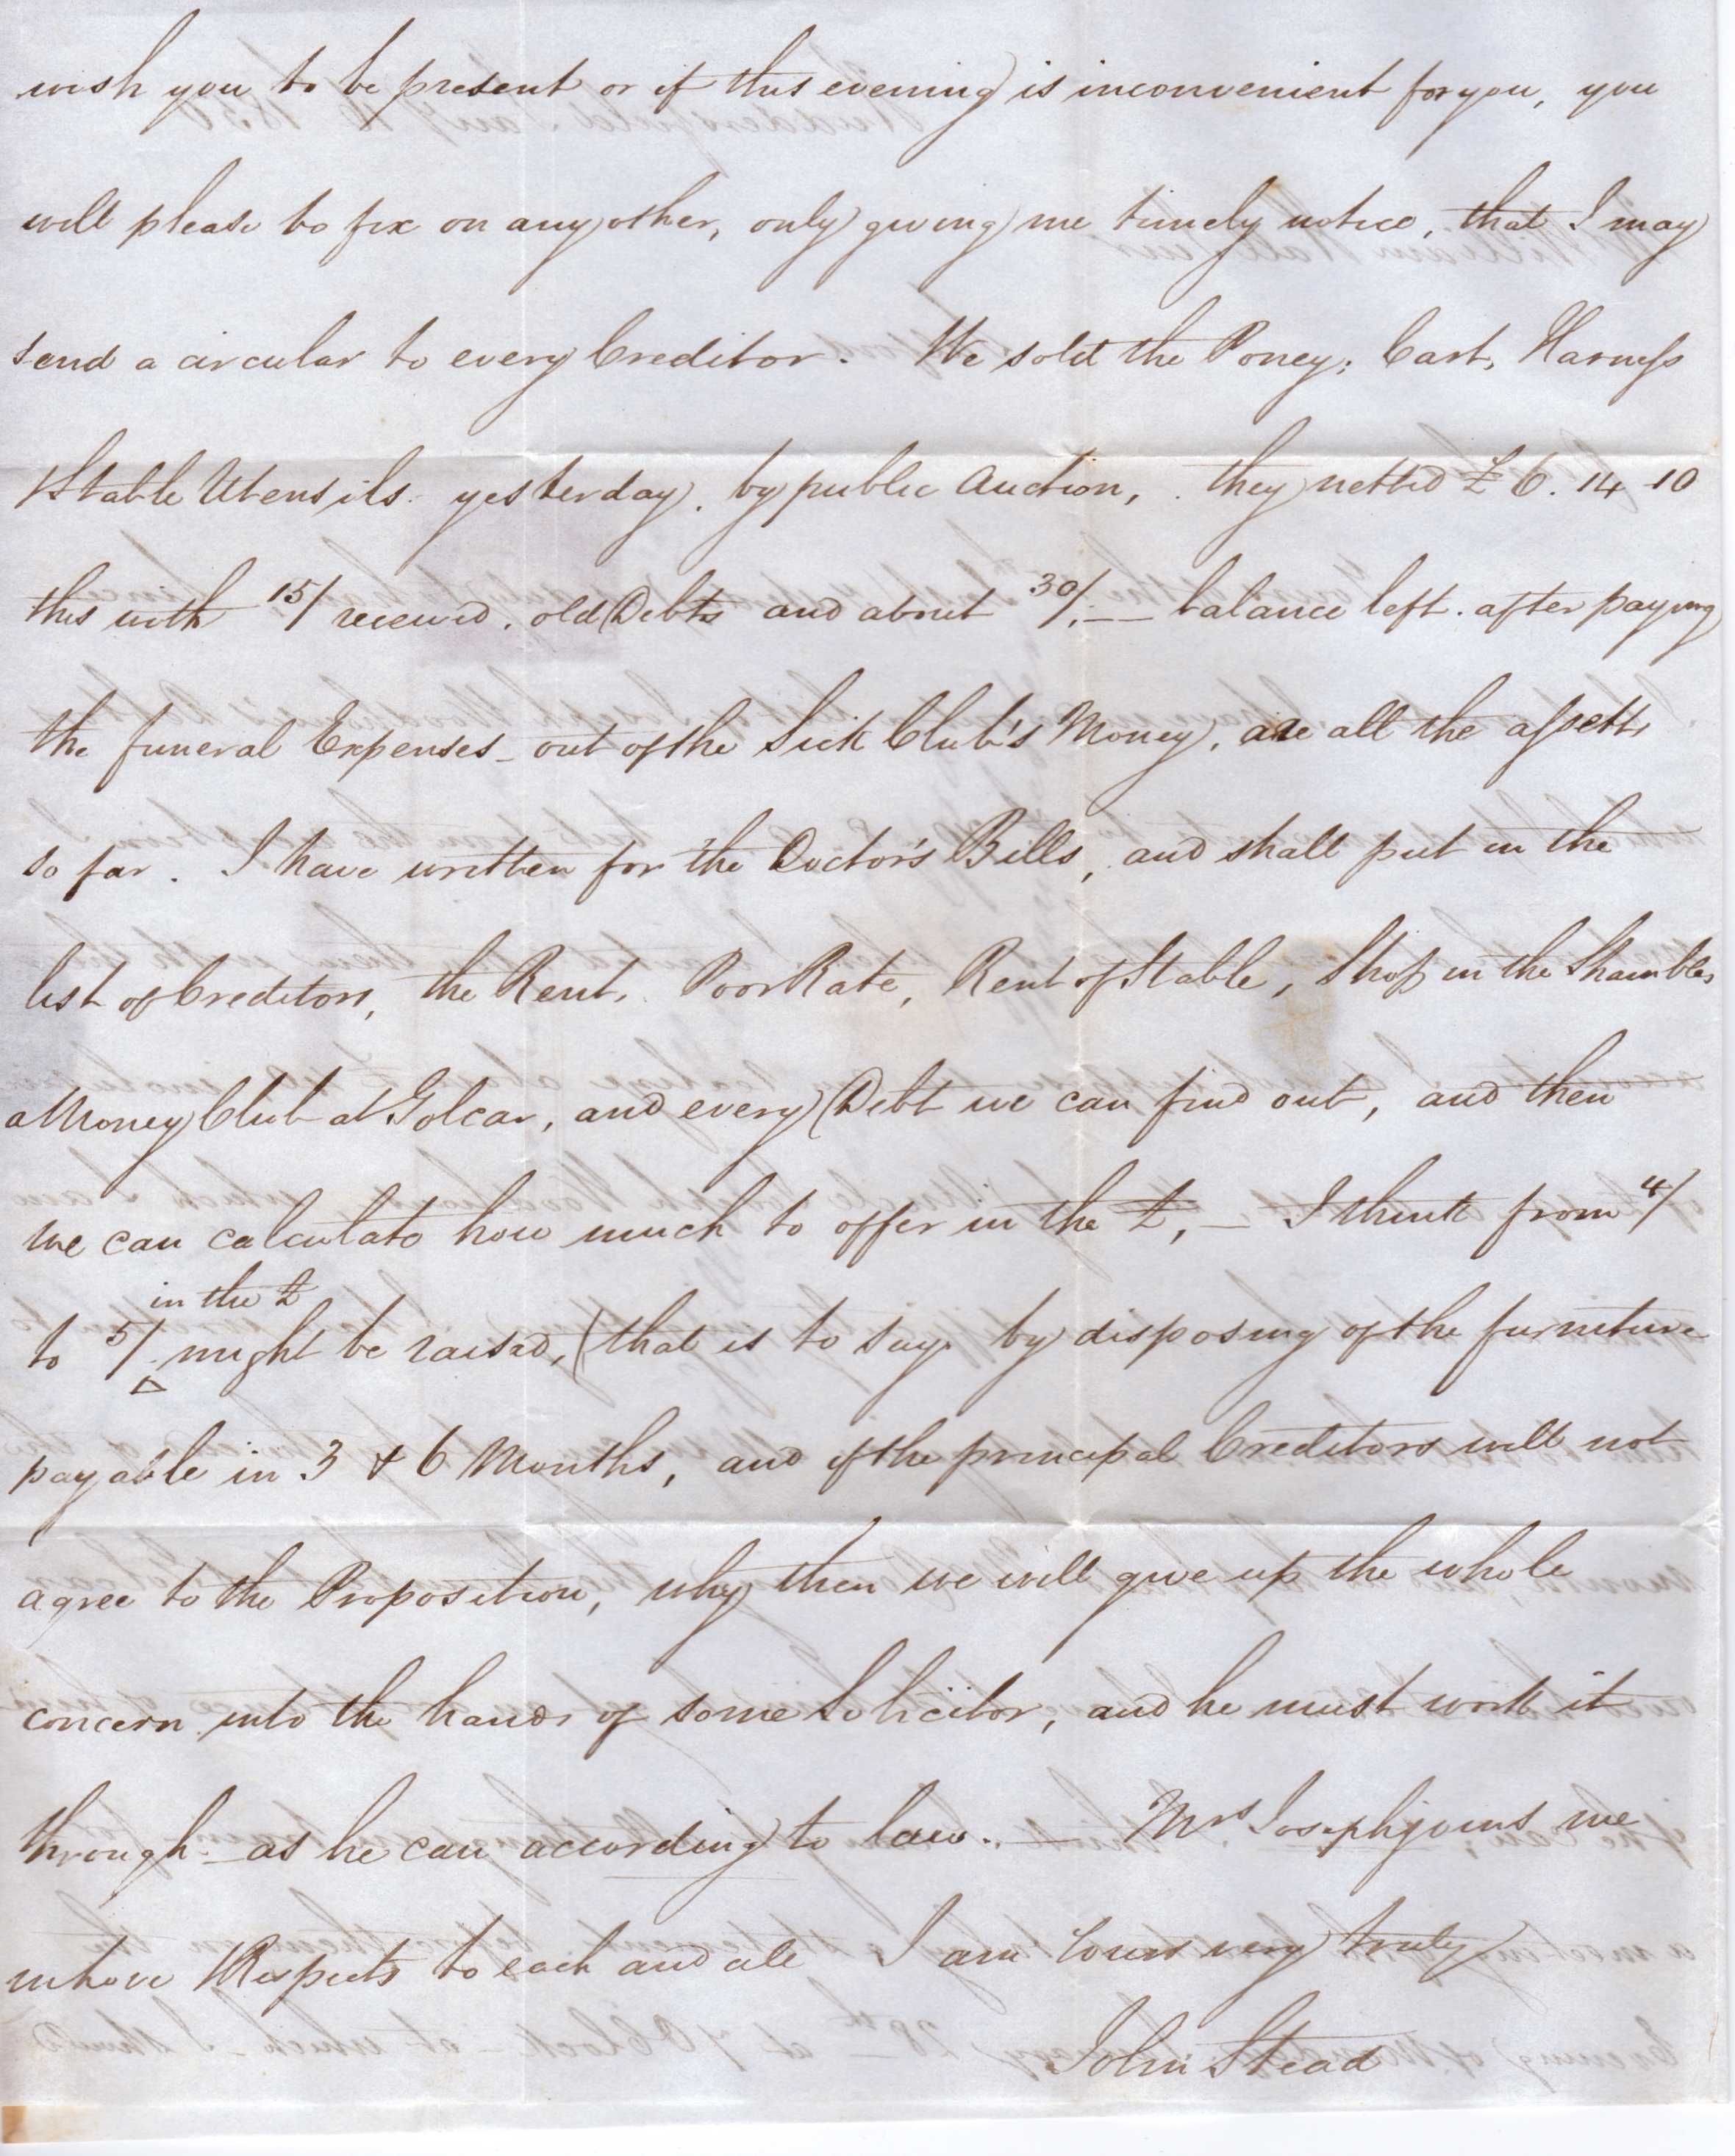 wish you to be present or if this evening is inconvenient for you, you
will please to fix on any other, only giving me timely notice, that I may
send a circular to every Creditor. We sold the Poney, Cart, Harness
& Stable Utensils yesterday, by public Auction, they netted £6. 14 10
this with 15/ received, old Debts and about 30/. — balance left after paying
the funeral Expenses out of the Sick Club's Money, are all the assetts
so far. I have written for the Doctor's Bills, and shall put in the
list of Creditors, the Rent, Poor Rate, Rent of Stable, Shop in the Shambles
a Money Club at Golcar, and every Debt we can find out, and then
we can calculate how much to offer in the £, — I think from 4/
in the £
to 5/. might be raised, (that is to say by disposing of the furniture
payable in 3 & 6 Months, and if the principal Creditors will not
agree to the Proposition, why then we will give up the whole
concern into the hands of some Solicitor, and he must work it
through as he can according to law. — Mrs Joseph joins me
in love & Respects to each and all I am Yours very truly
John Stead